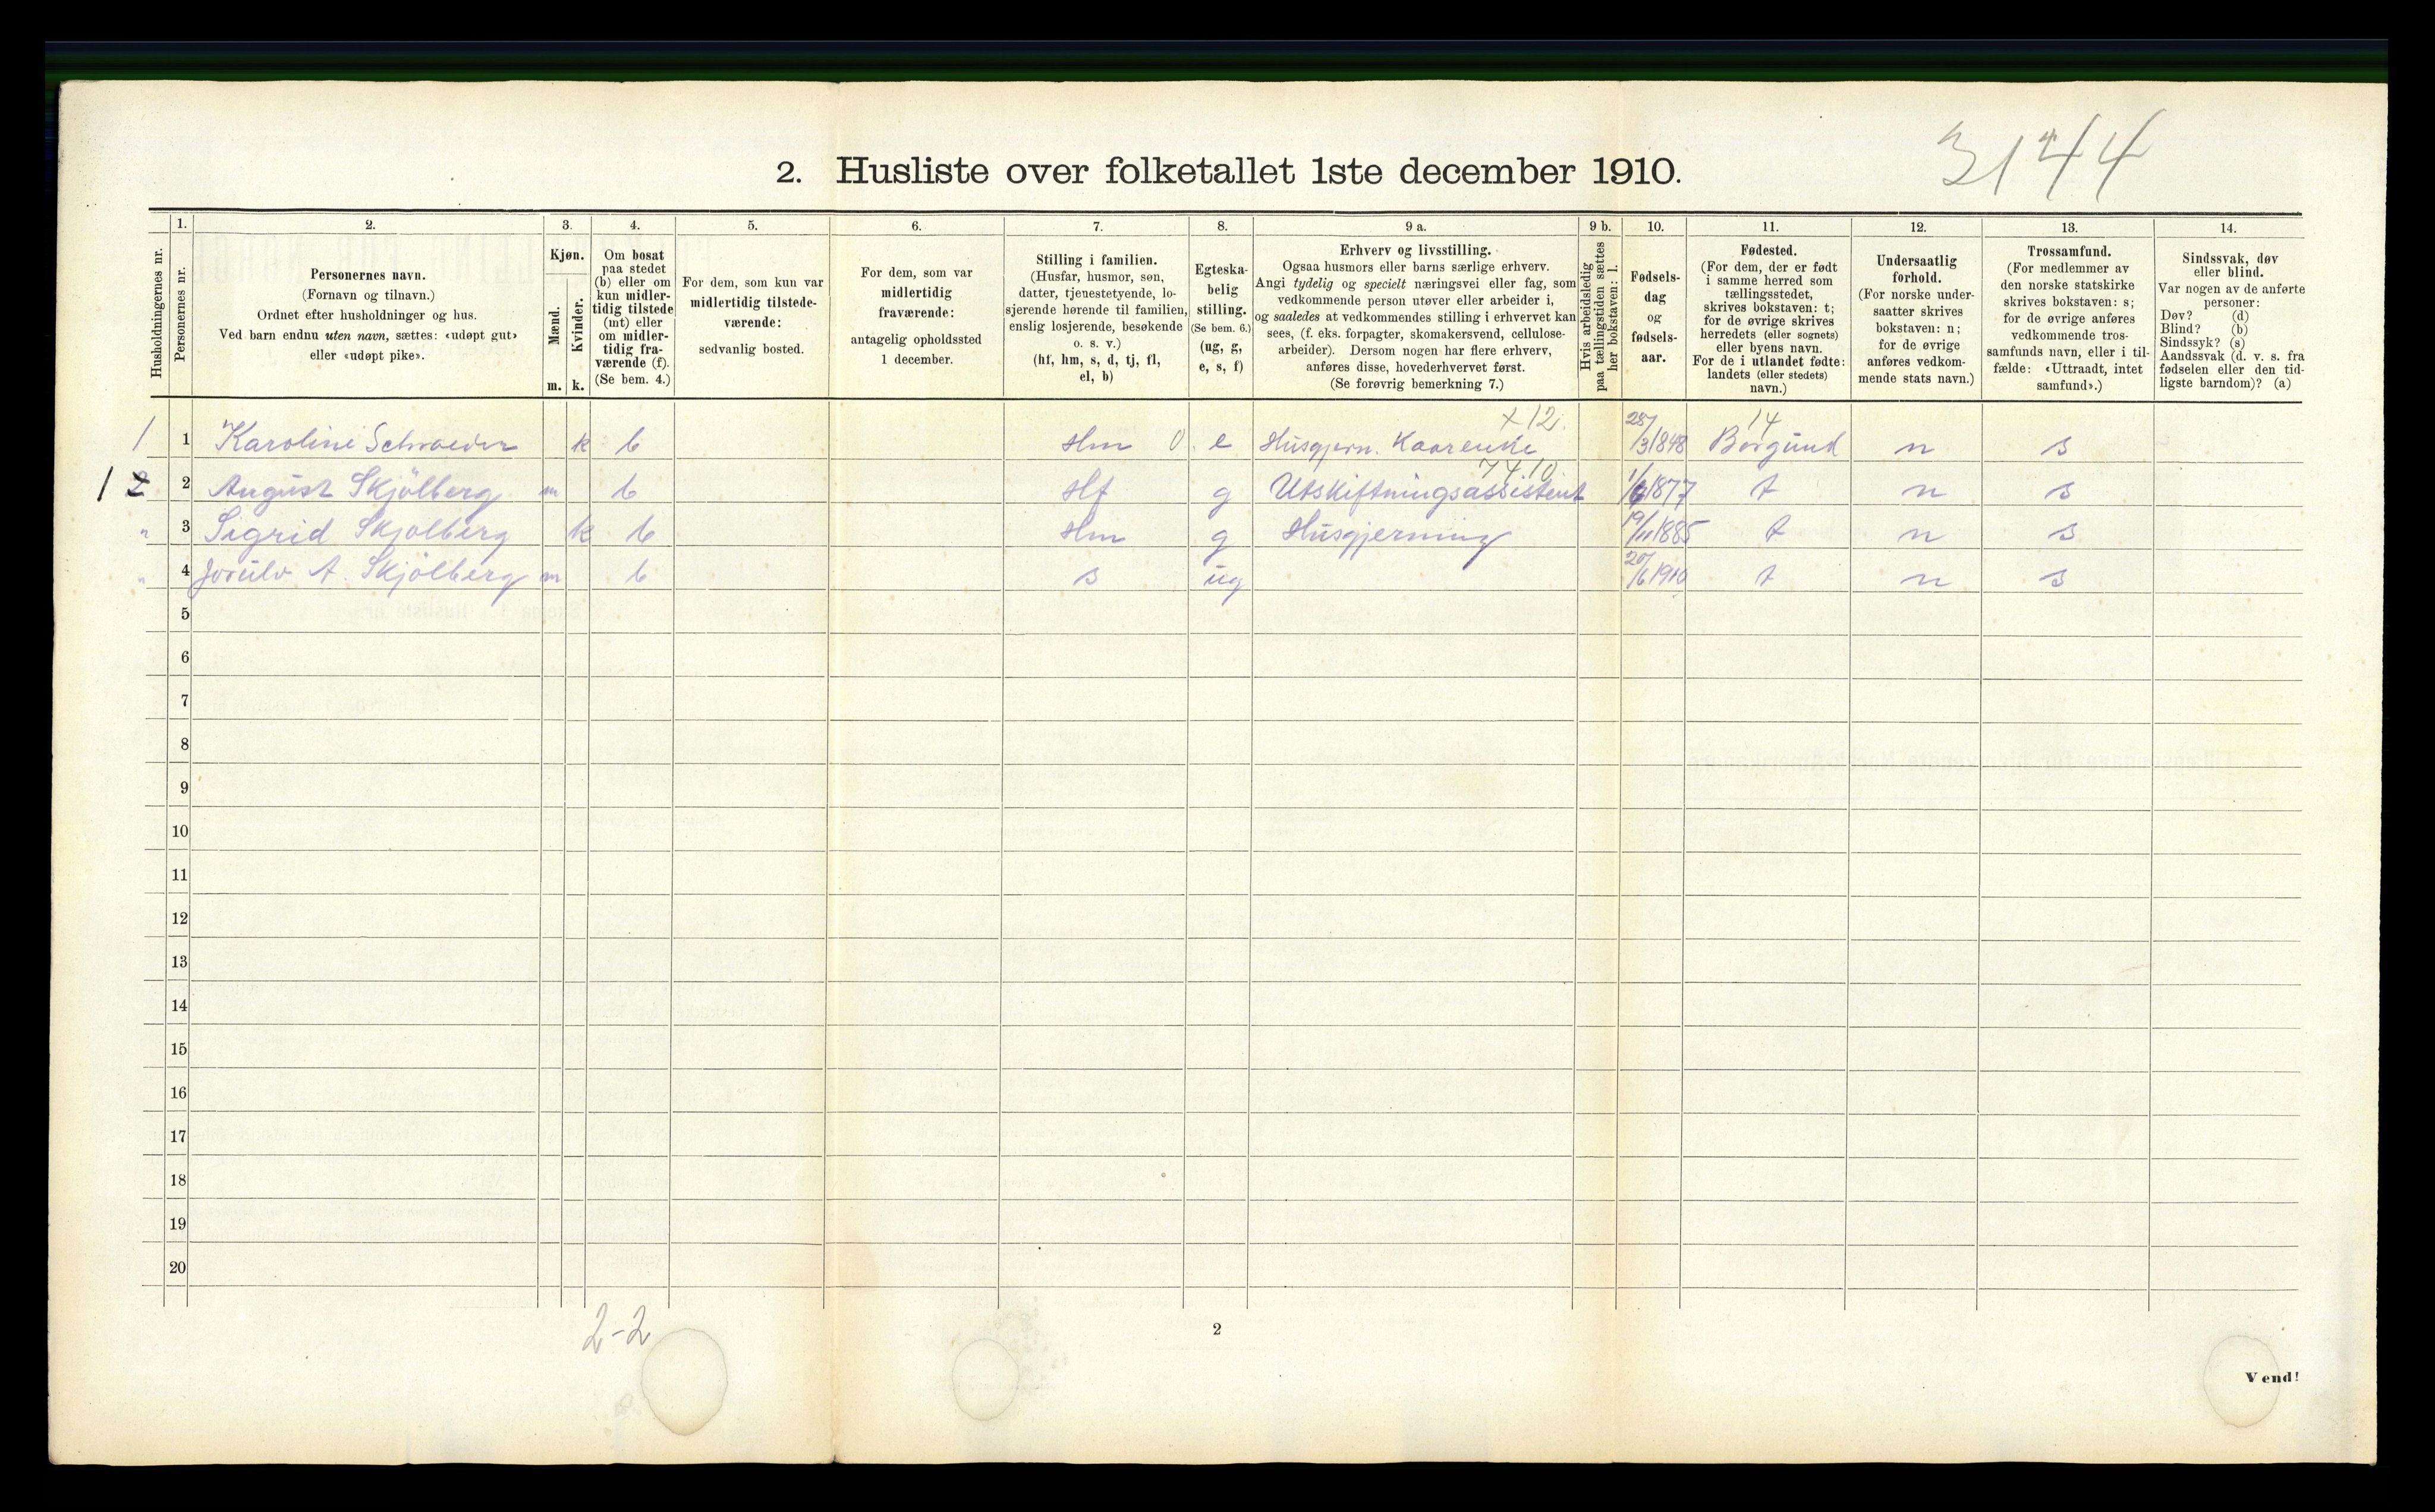 3144
2. Husliste over folketallet 1ste december 1910.
1. 2. 3. 4. 5. 6. 7. 8. 9 a. 9 b. 10. 11. 12. 13. 14.
Husholdningernes nr.
Personernes nr.
Personernes navn.
(Fornavn og tilnavn.)
Ordnet efter husholdninger og hus.
Ved barn endnu uten navn, sættes: «udøpt gut»
eller «udøpt pike».
Kjøn.
Mænd.
Kvinder.
m. k.
Om bosat
paa stedet
(b) eller om
kun midler-
tidig tilstede
(mt) eller
om midler-
tidig fra-
værende (f).
(Se bem. 4.)
For dem, som kun var
midlertidig tilstede-
værende:
sedvanlig bosted.
For dem, som var
midlertidig
fraværende:
antagelig opholdssted
1 december.
Stilling i familien.
(Husfar, husmor, søn,
datter, tjenestetyende, lo-
sjerende hørende til familien,
enslig losjerende, besøkende
o. s. v.)
(hf, hm, s, d, tj, fl,
el, b)
Egteska-
belig
stilling.
(Se bem. 6.)
(ug, g,
e, s, f)
Erhverv og livsstilling.
Ogsaa husmors eller barns særlige erhverv.
Angi tydelig og specielt næringsvei eller fag, som
vedkommende person utøver eller arbeider i,
og saaledes at vedkommendes stilling i erhvervet kan
sees, (f. eks. forpagter, skomakersvend, cellulose-
arbeider). Dersom nogen har flere erhverv,
anføres disse, hovederhvervet først.
(Se forøvrig bemerkning 7.)
Hvis arbeidsledig
paa tællingstiden sættes
her bokstaven: l.
Fødsels-
dag
og
fødsels-
aar.
Fødested.
(For dem, der er født
i samme herred som
tællingsstedet,
skrives bokstaven: t;
for de øvrige skrives
herredets (eller sognets)
eller byens navn.
For de i utlandet fødte:
landets (eller stedets)
navn.)
Undersaatlig
forhold.
(For norske under-
saatter skrives
bokstaven: n;
for de øvrige
anføres vedkom-
mende stats navn.)
Trossamfund.
(For medlemmer av
den norske statskirke
skrives bokstaven: s;
for de øvrige anføres
vedkommende tros-
samfunds navn, eller i til-
fælde: «Uttraadt, intet
samfund».)
Sindssvak, døv
eller blind.
Var nogen av de anførte
personer:
Døv? (d)
Blind? (b)
Sindssyk? (s)
Aandssvak (d. v. s. fra
fødselen eller den tid-
ligste barndom)? (a)
x 12. 14
1 1 Karoline Schrøeder k b Hm 0 e Husgjern. 28/3 1848 Borgund n s
7410.
1 2 2 August Skjölberg m b Hf g Utskiftningsassistent 1/6 1877 t n s
" 3 Sigrid Skjolberg k b Hm g Husgjerning 19/11 1885 t n s
" 4 A. Skjölberg m b s ug 20/6 1910 t n s
5
6
7
8
9
10
11
12
13
14
15
16
17
18
19
20
2-2
2
Vend!